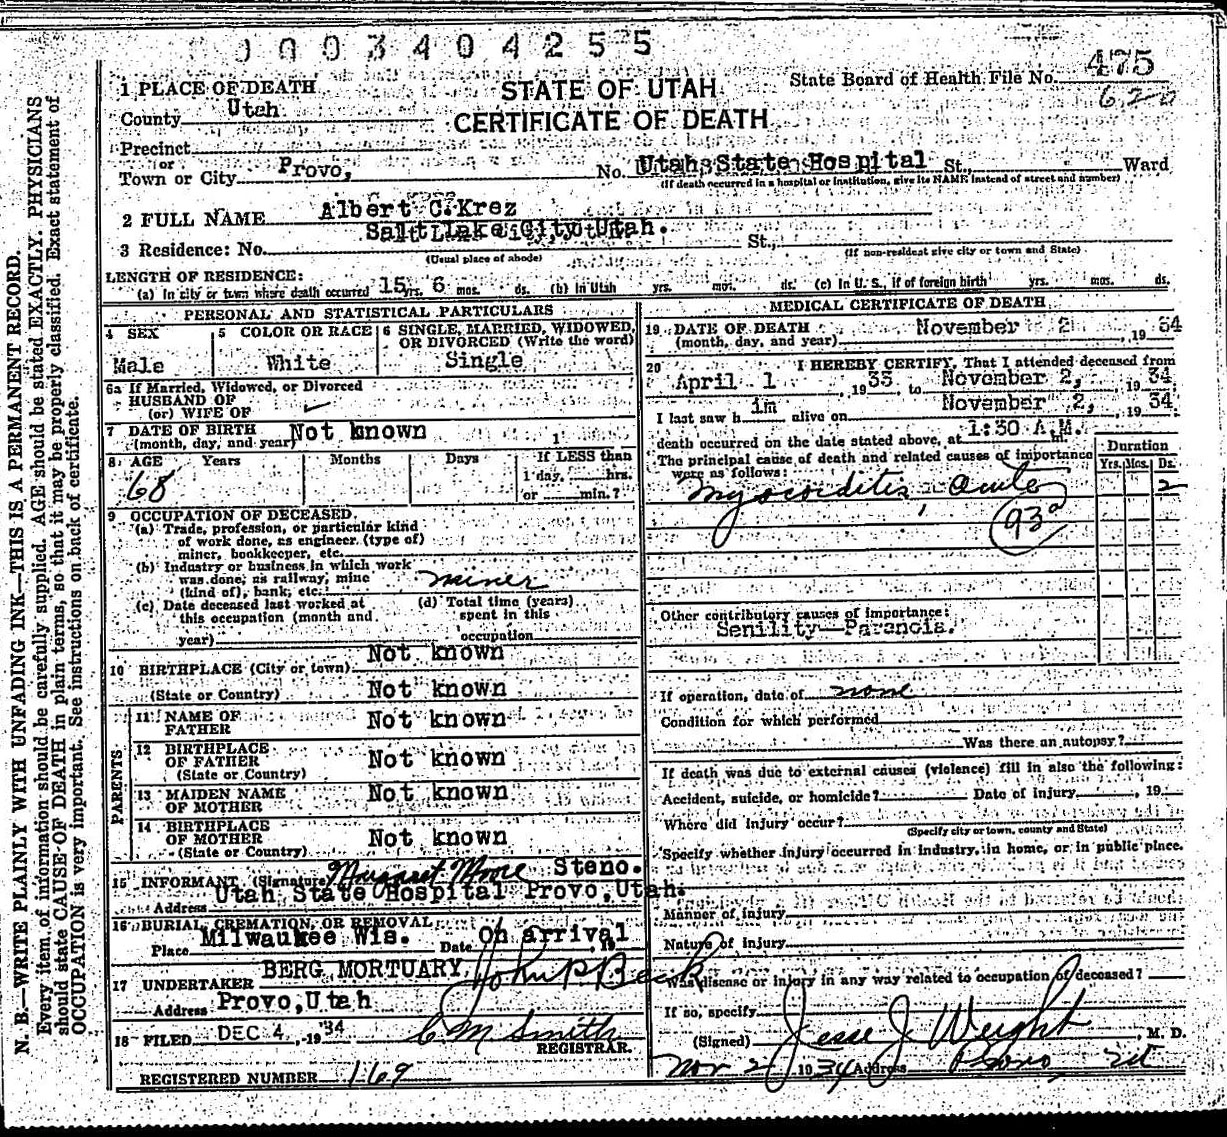 0003404255
STATE OF UTAH
CERTIFICATE OF DEATH
State Board of Health File No. 475
620
1 PLACE OF DEATH
County Utah
Precinct
or
Town or City Provo, No. Utah State Hospital St., Ward
(If death occurred in a hospital or institution, give its NAME instead of street and number)
2 FULL NAME Albert C. Krez
Salt Lake City Utah.
3 Residence: No. St.,
(Usual place of abode) (If non-resident give city or town and State)
LENGTH OF RESIDENCE:
(a) In city or town where death occurred 15 yrs. 6 mos. ds. (b) In Utah yrs. mos. ds. (c) In U. S., if of foreign birth yrs. mos. ds.
PERSONAL AND STATISTICAL PARTICULARS
4 SEX
Male
5 COLOR OR RACE
White
6 SINGLE, MARRIED, WIDOWED,
OR DIVORCED (Write the word)
Single
6a If Married, Widowed, or Divorced
HUSBAND OF
(or) WIFE OF
7 DATE OF BIRTH
(month, day, and year) Not known
8 AGE Years Months Days If LESS than
68
1 day, hrs.
or min.?
9 OCCUPATION OF DECEASED.
(a) Trade, profession, or particular kind
of work done, as engineer (type of)
miner, bookkeeper, etc.
(b) Industry or business in which work
was done; as railway, mine
(kind of), bank, etc. miner
(c) Date deceased last worked at
this occupation (month and
year)
(d) Total time (years)
spent in this
occupation
Not known
10 BIRTHPLACE (City or town)
(State or Country) Not known
PARENTS
11 NAME OF
FATHER Not known
12 BIRTHPLACE
OF FATHER Not known
(State or Country)
13 MAIDEN NAME
OF MOTHER Not known
14 BIRTHPLACE
OF MOTHER Not known
(State or Country)
15 INFORMANT (Signature) Margaret Moore Steno.
Address Utah State Hospital Provo, Utah.
16 BURIAL, CREMATION, OR REMOVAL
Place Milwaukee Wis. Date On arrival, 19
BERG MORTUARY John P Beck
17 UNDERTAKER
Address Provo, Utah
18 FILED DEC 4, 19 '34 C M Smith
REGISTRAR.
REGISTERED NUMBER 169
MEDICAL CERTIFICATE OF DEATH
19 DATE OF DEATH November 2, 1934
(month, day, and year)
20 I HEREBY CERTIFY, That I attended deceased from
April 1, 1933, to November 2, 1934
I last saw him alive on November 2, 1934
death occurred on the date stated above, at 1:30 A.M. m.
The principal cause of death and related causes of importance
were as follows:
Duration
Yrs. Mos. Ds.
Myocorditis, Acute 2
93a
Other contributory causes of importance:
Senility—Paranoia.
If operation, date of none
Condition for which performed
Was there an autopsy?
If death was due to external causes (violence) fill in also the following:
Accident, suicide, or homicide? Date of injury, 19
Where did injury occur?
(Specify city or town, county and State)
Specify whether injury occurred in industry, in home, or in public place.
Manner of injury
Nature of injury
Was disease or injury in any way related to occupation of deceased?
If so, specify
(Signed) Jesse J Weight, M. D.
Nov 2 1934 Address Provo, Ut
N. B.—WRITE PLAINLY WITH UNFADING INK—THIS IS A PERMANENT RECORD.
Every item of information should be carefully supplied. AGE should be stated EXACTLY. PHYSICIANS
should state CAUSE OF DEATH in plain terms, so that it may be properly classified. Exact statement of
OCCUPATION is very important. See instructions on back of certificate.